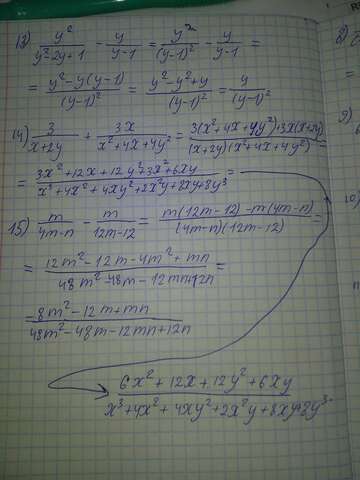 13) y²/(y²-2y+1) - y/(y-1) = y²/(y-1)² - y/(y-1) =
= (y²-y(y-1))/(y-1)² = (y²-y²+y)/(y-1)² = y/(y-1)²
14) 3/(x+2y) + 3x/(x²+4x+4y²) = (3(x²+4x+4y²)+3x(x+2y))/((x+2y)(x²+4x+4y²)) =
= (3x²+12x+12y²+3x²+6xy)/(x³+4x²+4xy²+2x²y+8xy+8y³) =
15) m/(4m-n) - m/(12m-12) = (m(12m-12)-m(4m-n))/((4m-n)(12m-12)) =
= (12m²-12m-4m²+mn)/(48m²-48m-12mn+12n) =
= (8m²-12m+mn)/(48m²-48m-12mn+12n)
(6x²+12x+12y²+6xy)/(x³+4x²+4xy²+2x²y+8xy+8y³)
8)
=
9)
10)